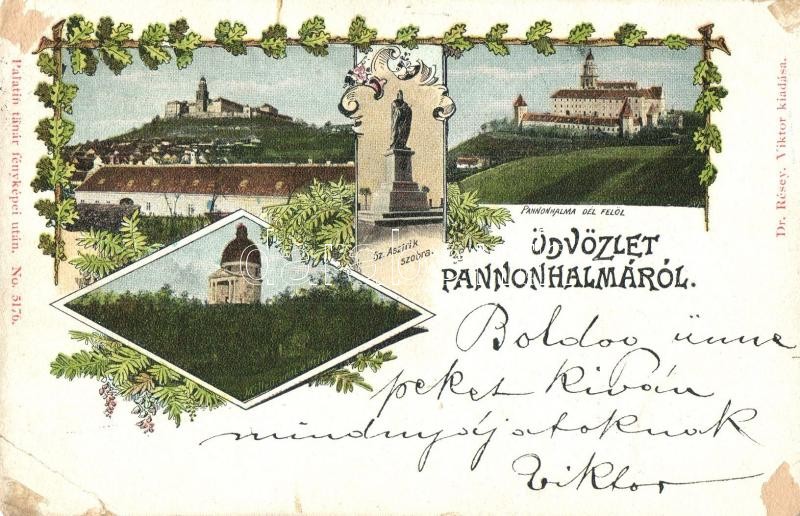 Palatin tanár fényképei után. No. 5176.
Dr. Récsey Viktor kiadása.
PANNONHALMA DÉL FELŐL
Sz. Asztrik
szobra.
ÜDVÖZLET
PANNONHALMÁRÓL.
Boldog ünne
peket kiván
mindnyájatoknak
Viktor